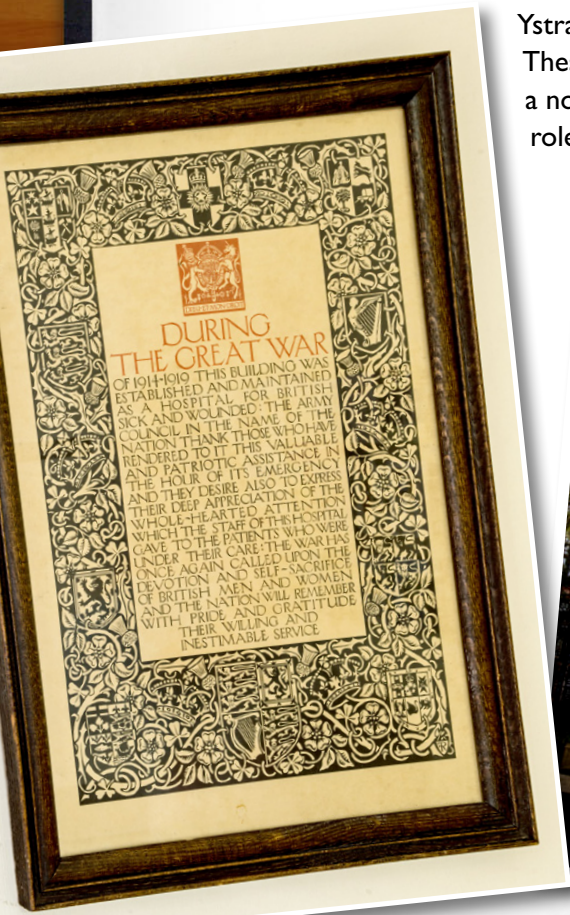 Ystra
Thes
a no
role
DURING
THE GREAT WAR
OF 1914-1919 THIS BUILDING WAS
ESTABLISHED AND MAINTAINED
AS A HOSPITAL FOR BRITISH
SICK AND WOUNDED : THE ARMY
COUNCIL IN THE NAME OF THE
NATION THANK THOSE WHO HAVE
RENDERED TO IT THIS VALUABLE
AND PATRIOTIC ASSISTANCE IN
THE HOUR OF ITS EMERGENCY
AND THEY DESIRE ALSO TO EXPRESS
THEIR DEEP APPRECIATION OF THE
WHOLE-HEARTED ATTENTION
WHICH THE STAFF OF THIS HOSPITAL
GAVE TO THE PATIENTS WHO WERE
UNDER THEIR CARE : THE WAR HAS
ONCE AGAIN CALLED UPON THE
DEVOTION AND SELF-SACRIFICE
OF BRITISH MEN AND WOMEN
AND THE NATION WILL REMEMBER
WITH PRIDE AND GRATITUDE
THEIR WILLING AND
INESTIMABLE SERVICE